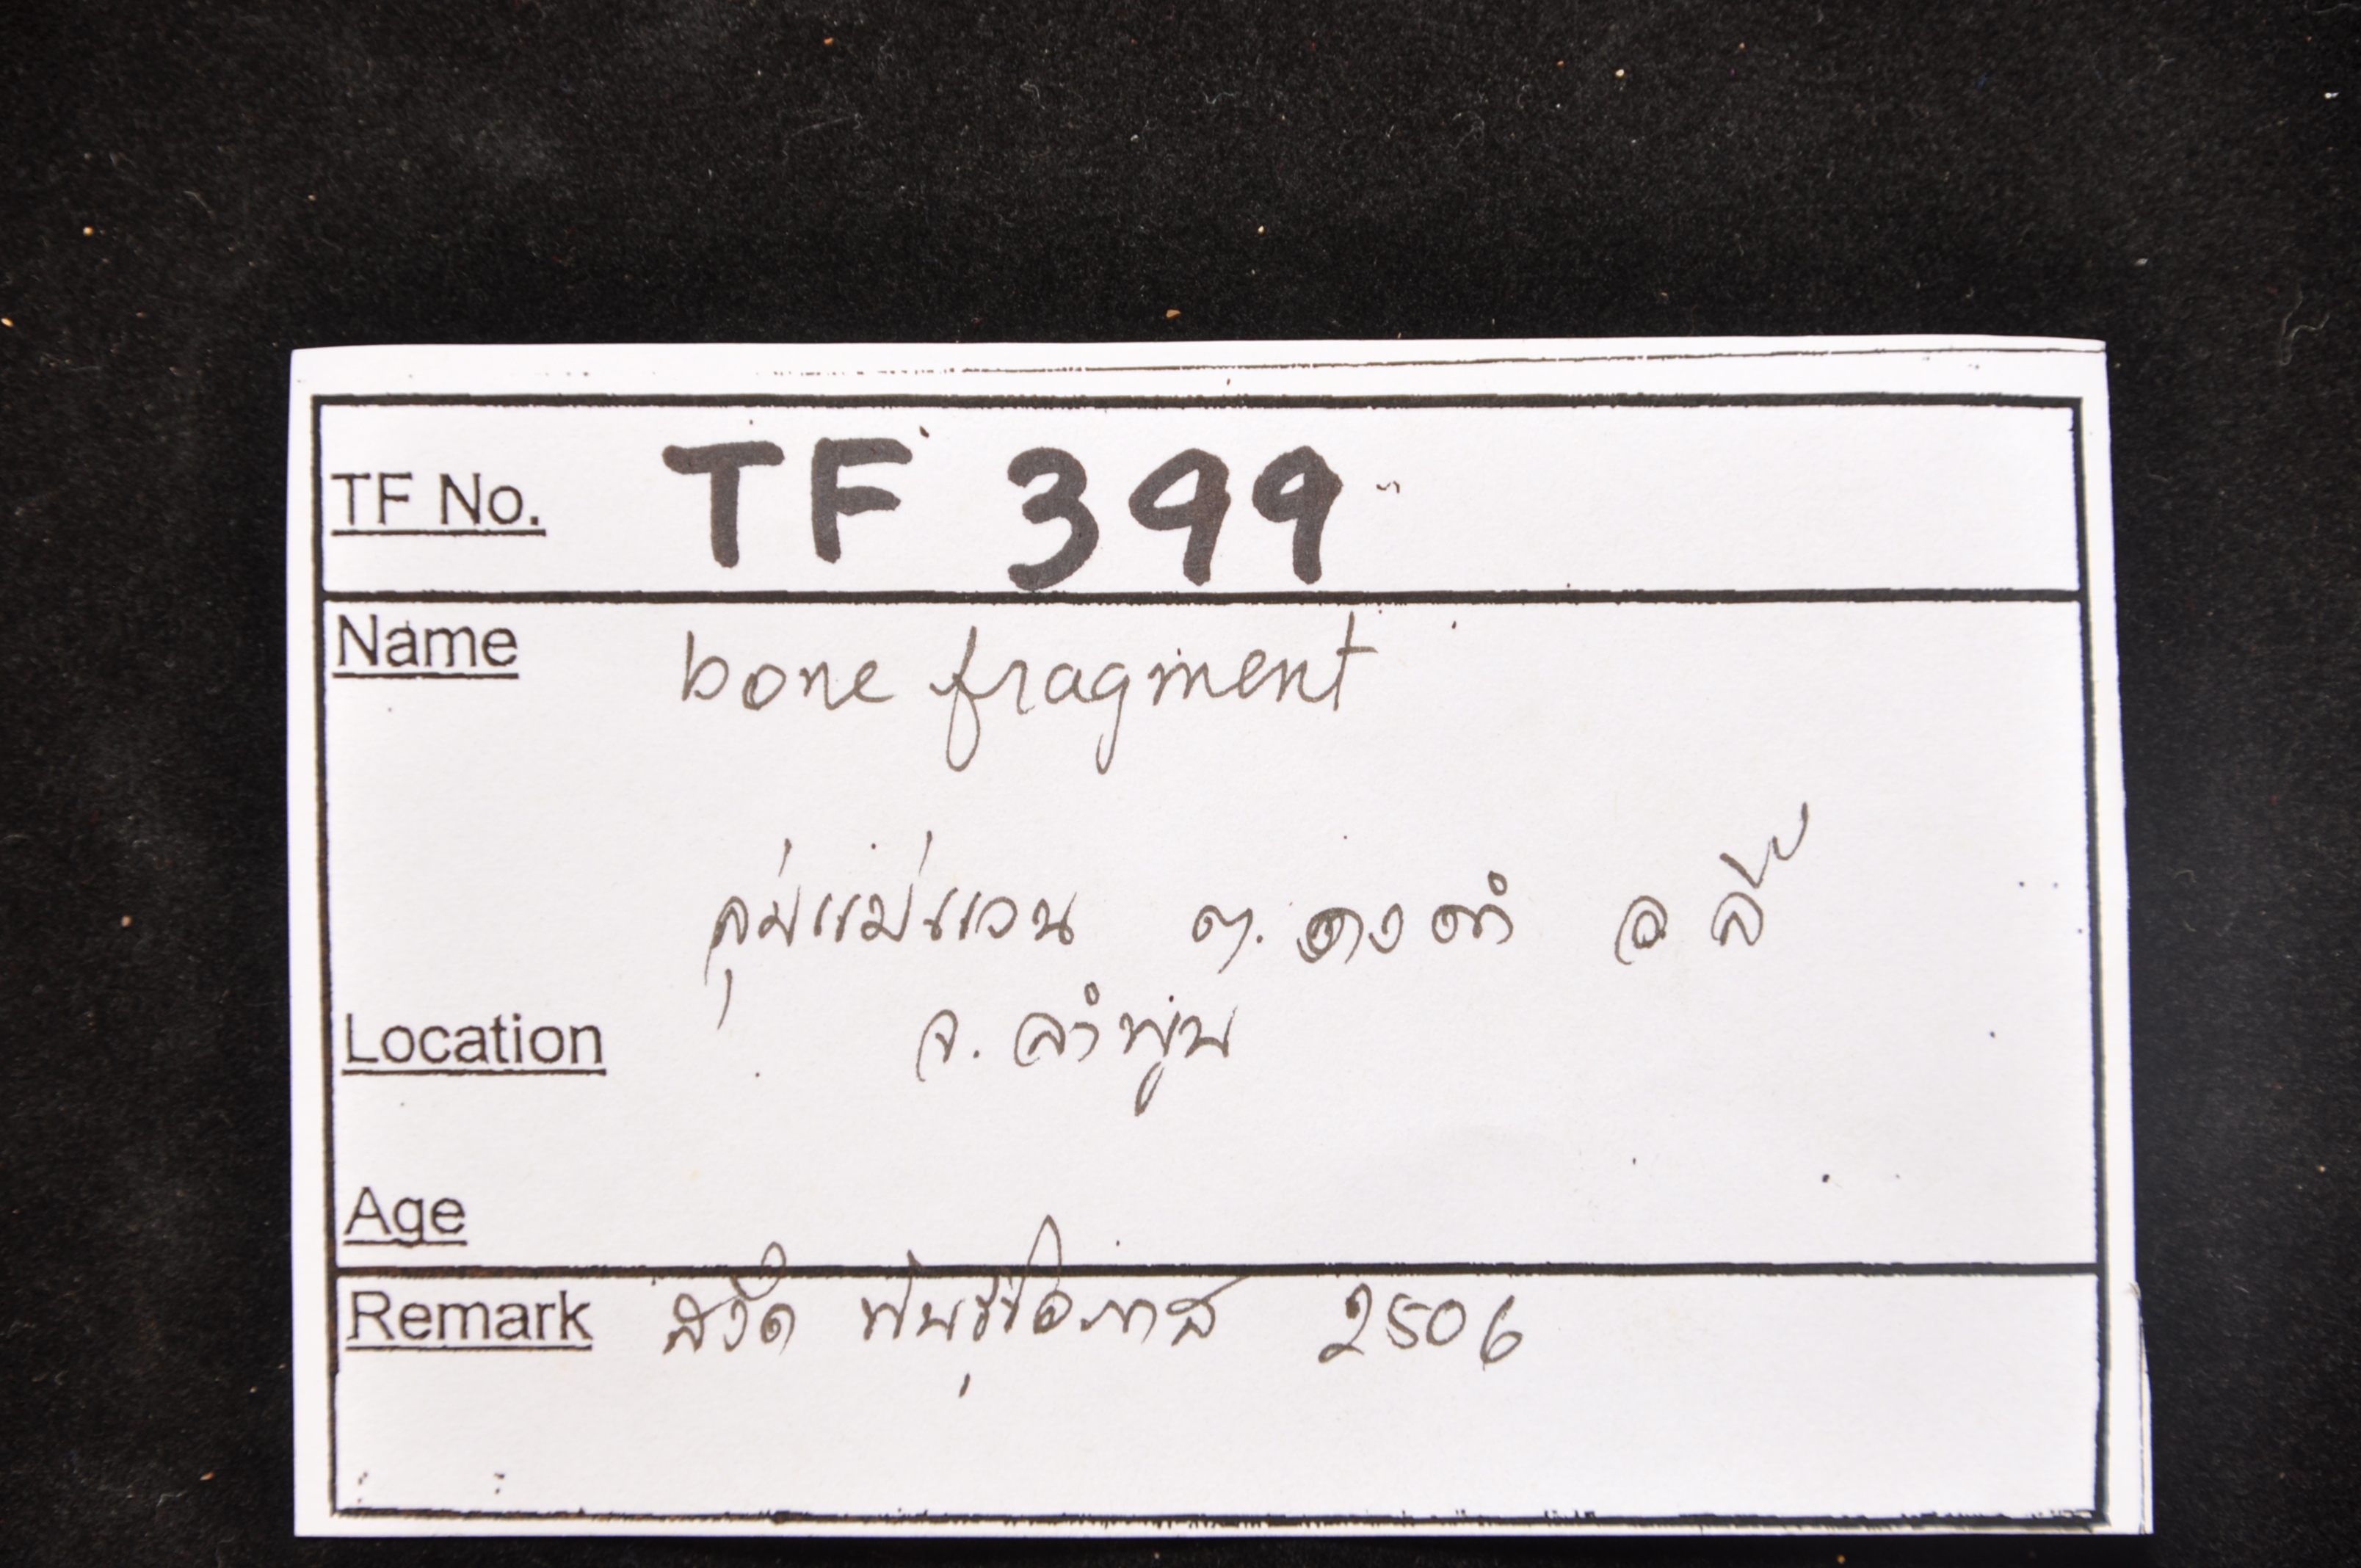 TF No. TF 399
Name bone fragment
ลุ่มแม่แวน ต.ดงดำ อ ลี้
Location จ. ลำพูน
Age
Remark สงัด พันธุ์โอภาส 2506